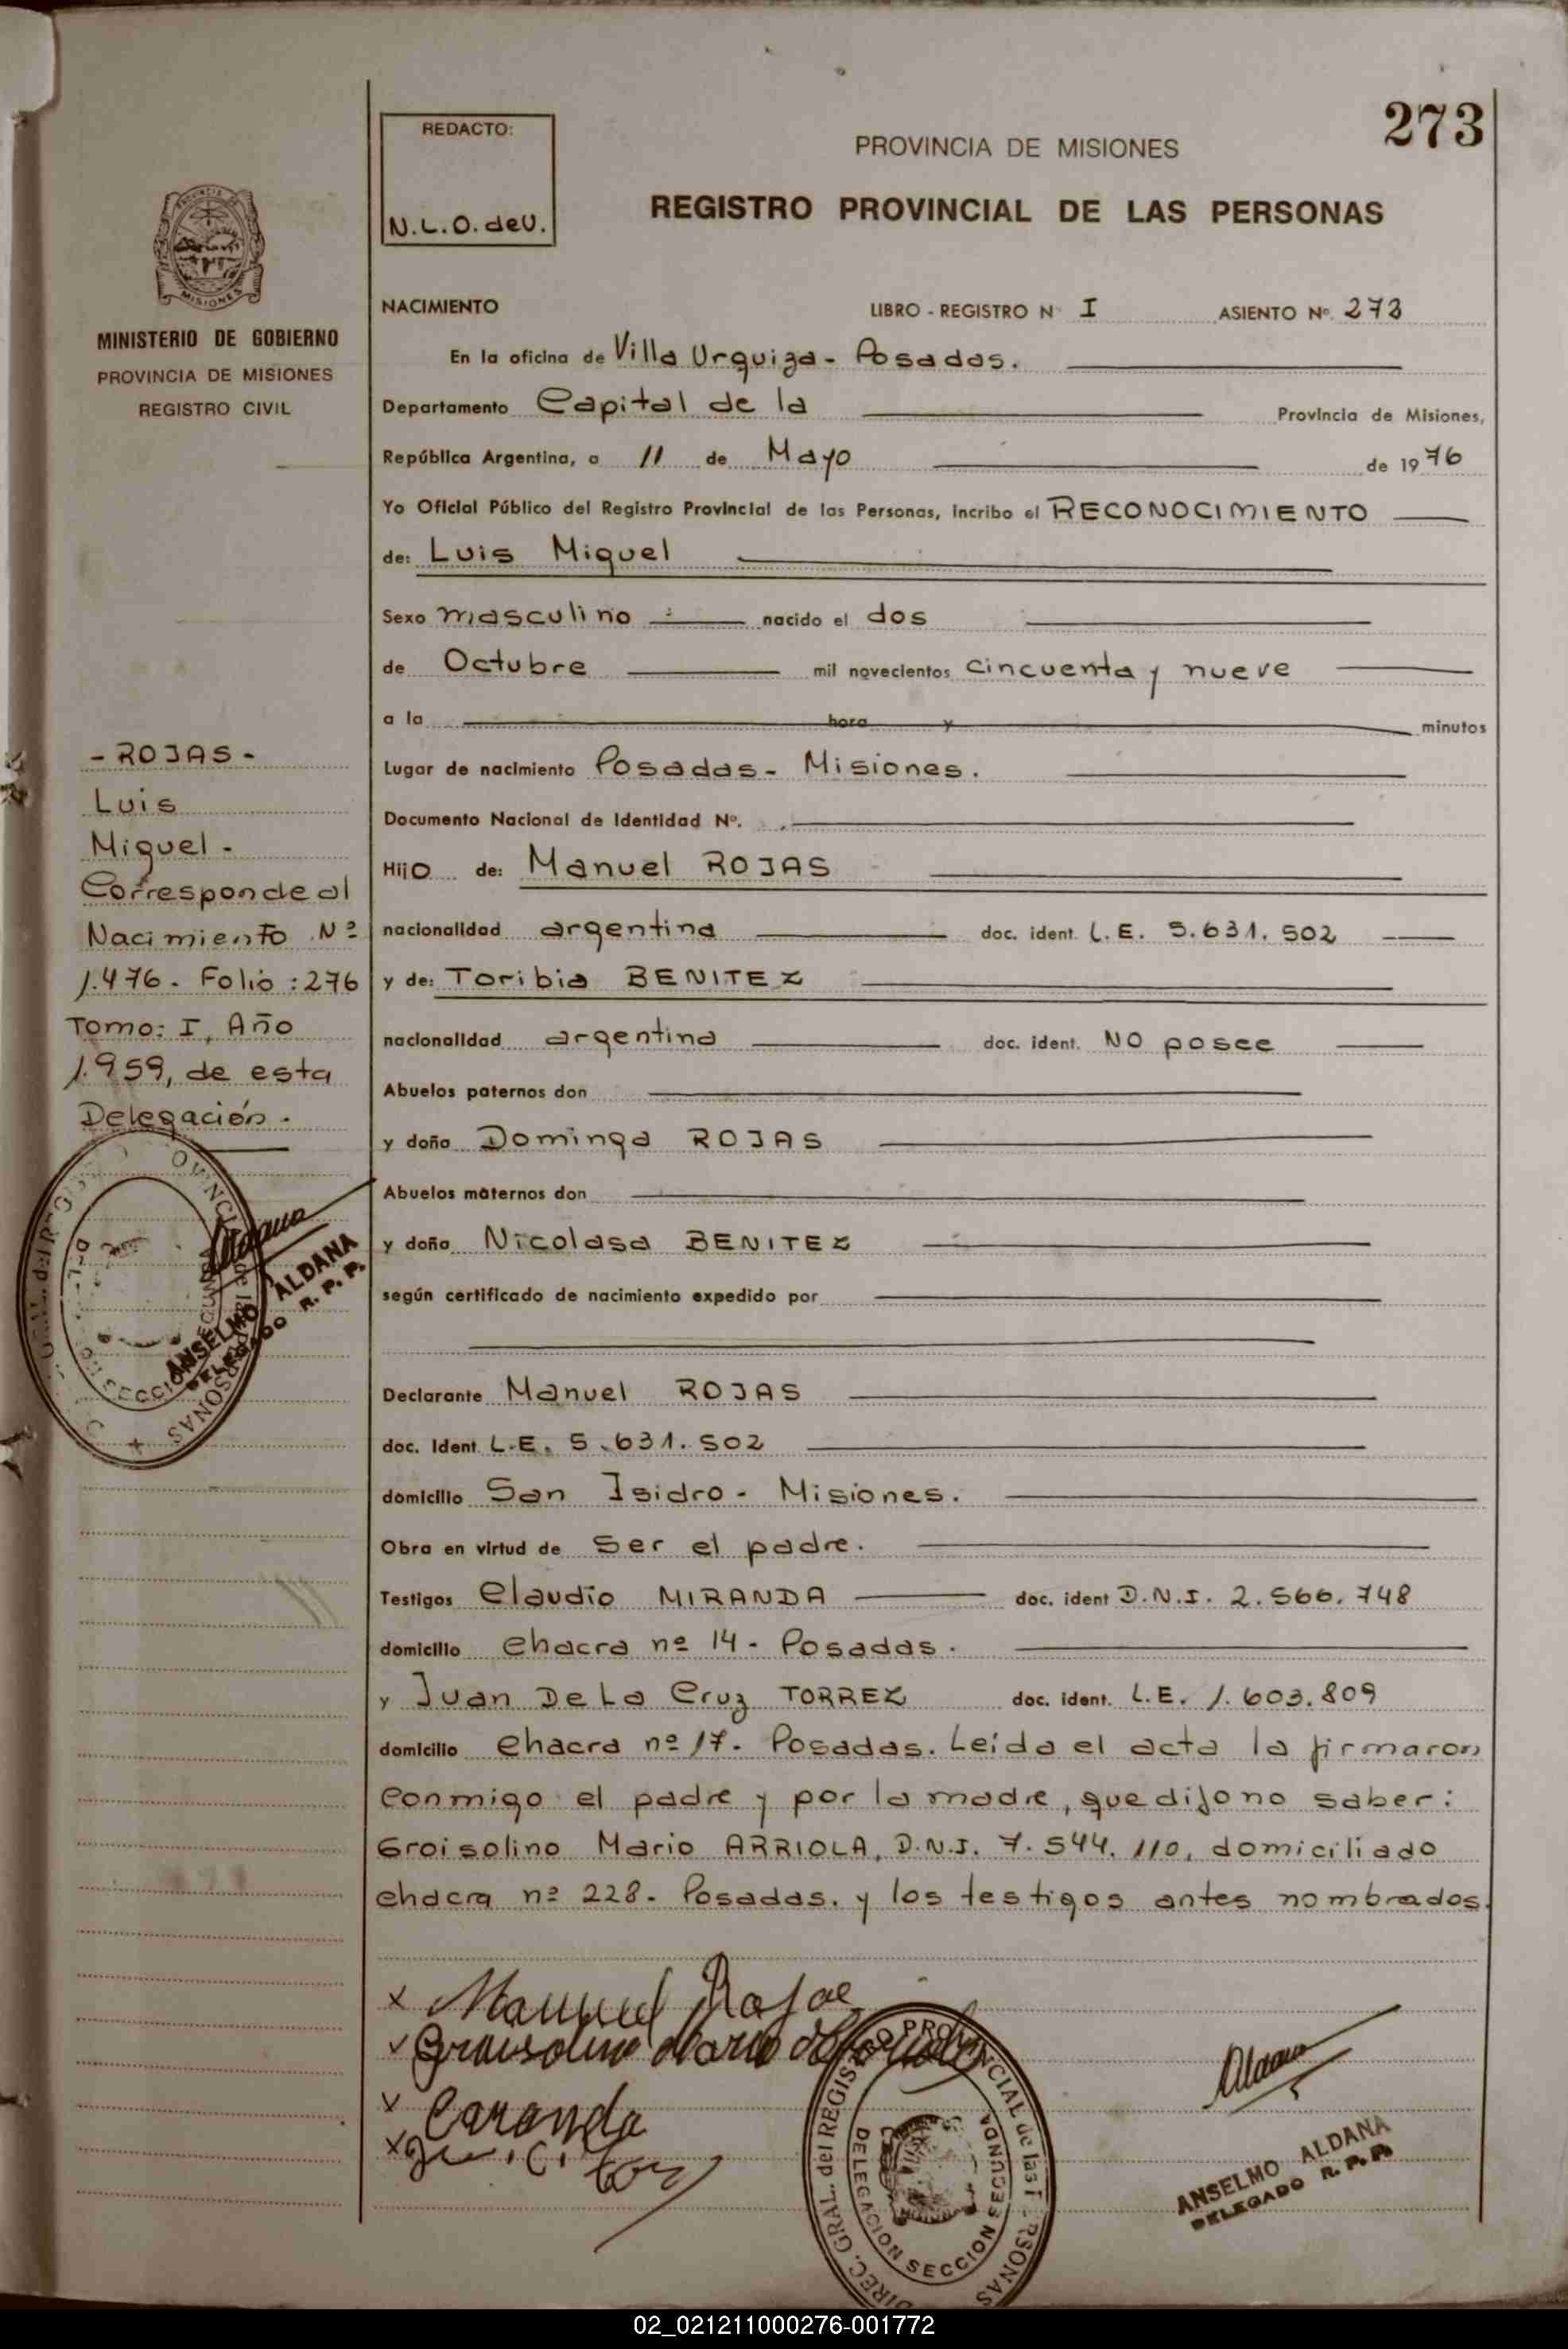 273
REDACTO:
N.L.O. deU.
PROVINCIA DE MISIONES
REGISTRO PROVINCIAL DE LAS PERSONAS
MISIONES
MINISTERIO DE GOBIERNO
PROVINCIA DE MISIONES
REGISTRO CIVIL
NACIMIENTO LIBRO - REGISTRO Nº I ASIENTO Nº. 273
En la oficina de Villa Urquiza - Posadas.
Departamento Capital de la Provincia de Misiones,
República Argentina, a 11 de Mayo de 1976
Yo Oficial Público del Registro Provincial de las Personas, incribo el RECONOCIMIENTO
de: Luis Miguel
Sexo masculino nacido el dos
de Octubre mil novecientos cincuenta y nueve
a la hora y minutos
Lugar de nacimiento Posadas - Misiones.
Documento Nacional de Identidad Nº.
Hijo de: Manuel ROJAS
nacionalidad argentina doc. ident. L.E. 5.631.502
y de: Toribia BENITEZ
nacionalidad argentina doc. ident. NO posee
Abuelos paternos don
y doña Dominga ROJAS
Abuelos maternos don
y doña Nicolasa BENITEZ
según certificado de nacimiento expedido por
Declarante Manuel ROJAS
doc. Ident. L.E. 5.631.502
domicilio San Isidro - Misiones.
Obra en virtud de Ser el padre.
Testigos Claudio MIRANDA doc. ident D.N.I. 2.566.748
domicilio Chacra nº 14 - Posadas.
y Juan De La Cruz TORREZ doc. ident. L.E. 1.603.809
domicilio Chacra nº 17. Posadas. Leída el acta la firmaron
Conmigo el padre y por la madre, que dijo no saber:
Groisolino Mario ARRIOLA, D.N.I. 7.544.110, domiciliado
chacra nº 228 - Posadas. y los testigos antes nombrados.
- ROJAS -
Luis
Miguel -
Corresponde al
Nacimiento Nº
1.476 - Folio: 276
Tomo: I, Año
1.959, de esta
Delegación -
Aldana
ANSELMO ALDANA
DELEGADO R. P. P.
x Manuel Rojas
x Groisolino Mario Arriola
x
x
DIREC. GRAL. del REGISTRO PROVINCIAL de las PERSONAS
DELEGACION SECCION SEGUNDA
Aldana
ANSELMO ALDANA
DELEGADO R. P. P.
02_021211000276-001772